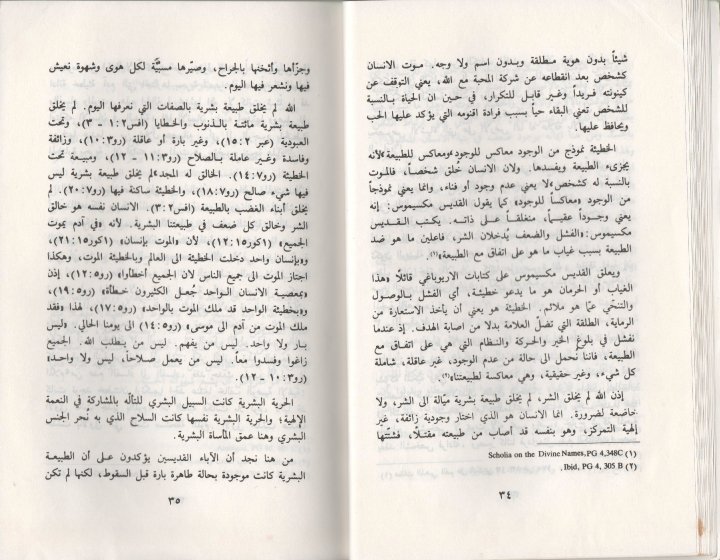 شيئاً بدون هوية مطلقة وبدون اسم ولا وجه. موت الانسان
كشخص بعد انقطاعه عن شركة المحبة مع الله، يعني التوقف عن
كينونته فريداً وغير قابل للتكرار، في حين ان الحياة بالنسبة
للشخص تعني البقاء حياً بسبب فرادة اقنومه التي يؤكد عليها الحب
ويحافظ عليها.
الخطيئة نموذج من الوجود معاكس للوجود «ومعاكس للطبيعة» لأنه
يجزىء الطبيعة ويفسدها. ولان الانسان خُلق شخصاً، فالموت
بالنسبة له كشخص «لا يعني عدم وجود أو فناء، وانما يعني نموذجاً
من الوجود «معاكساً للوجود» كما يقول القديس مكسيموس: إنه
يعني وجوداً عقيماً، منغلقاً على ذاته. يكتب القديس
مكسيموس: «الفشل والضعف يُدخلان الشر، فاعلين ما هو ضد
الطبيعة بسبب غياب ما هو على اتفاق مع الطبيعة»(١).
ويعلق القديس مكسيموس على كتابات الاريوباغي قائلاً «هذا
الغياب أو الحرمان هو ما يدعو خطيئة، أي الفشل بالوصول
والتنحّي عمّا هو ملائم. الخطيئة هو يعني أن يأخذ الاستعارة من
الرماية، الطلقة التي تضلّ العلامة بدلا من اصابة الهدف. إذ عندما
نفشل في بلوغ الخير والحركة والنظام التي هي على اتفاق مع
الطبيعة، فاننا نُحمل الى حالة من عدم الوجود، غير عاقلة، شاملة
كل شيء، وغير حقيقية، وهي معاكسة لطبيعتنا»(٢).
إذن الله لم يخلق الشر، لم يخلق طبيعة بشرية ميّالة الى الشر، ولا
خاضعة لضرورة. انما الانسان هو الذي اختار وجودية زائفة، غير
إلهية التمركز، وهو بنفسه قد أصاب من طبيعته مقتلاً، فشتّتها
(١) Scholia on the Divine Names, PG 4,348C
(٢) Ibid, PG 4, 305 B.
٣٤
وجزّأها وأثخنها بالجراح، وصيّرها مسبيَّة لكل هوى وشهوة نعيش
فيها ونشعر فيها اليوم.
الله لم يخلق طبيعة بشرية بالصفات التي نعرفها اليوم. لم يخلق
طبيعة بشرية مائتة بالذنوب والخطايا (افس٢:١ - ٣)، وتحت
العبودية (عبر ١٥:٢)، وغير بارة أو عاقلة (رو١٠:٣)، وزائفة
وفاسدة وغير عاملة بالصلاح (رو١١:٣ - ١٢)، ومبيعة تحت
الخطيئة (رو١٤:٧). الخالق له المجد «لم يخلق طبيعة بشرية ليس
فيها شيء صالح (رو١٨:٧)، والخطيئة ساكنة فيها (رو٢٠:٧). لم
يخلق أبناء الغضب بالطبيعة (افس٣:٢). الانسان نفسه هو خالق
الشر وخالق كل ضعف في طبيعتنا البشرية. لأنه «في آدم يموت
الجميع» (١كور١٢:١٥)، لأن «الموت بإنسان» (١كور٢١:١٥)،
«وبإنسان واحد دخلت الخطيئة الى العالم وبالخطيئة الموت، وهكذا
اجتاز الموت الى جميع الناس لان الجميع أخطأوا» (رو١٢:٥)، إذن
«بمعصية الانسان الواحد جُعل الكثيرون خطأة» (رو١٩:٥)،
و«بخطيئة الواحد قد ملك الموت بالواحد» (رو١٧:٥)، لهذا «فقد
ملك الموت من آدم الى موسى» (رو١٤:٥) الى يومنا الحالي. «ليس
بار ولا واحد. ليس من يفهم. ليس من يطلب الله. الجميع
زاغوا وفسدوا معاً. ليس من يعمل صلاحاً، ليس ولا واحد»
(رو١٠:٣ - ١٢).
الحرية البشرية كانت السبيل البشري للتألّه بالمشاركة في النعمة
الإلهية؛ والحرية البشرية نفسها كانت السلاح الذي به نُحر الجنس
البشري وهنا عمق المأساة البشرية.
من هنا نجد أن الآباء القديسين يؤكدون على أن الطبيعة
البشرية كانت موجودة بحالة طاهرة بارة قبل السقوط، لكنها لم تكن
٣٥